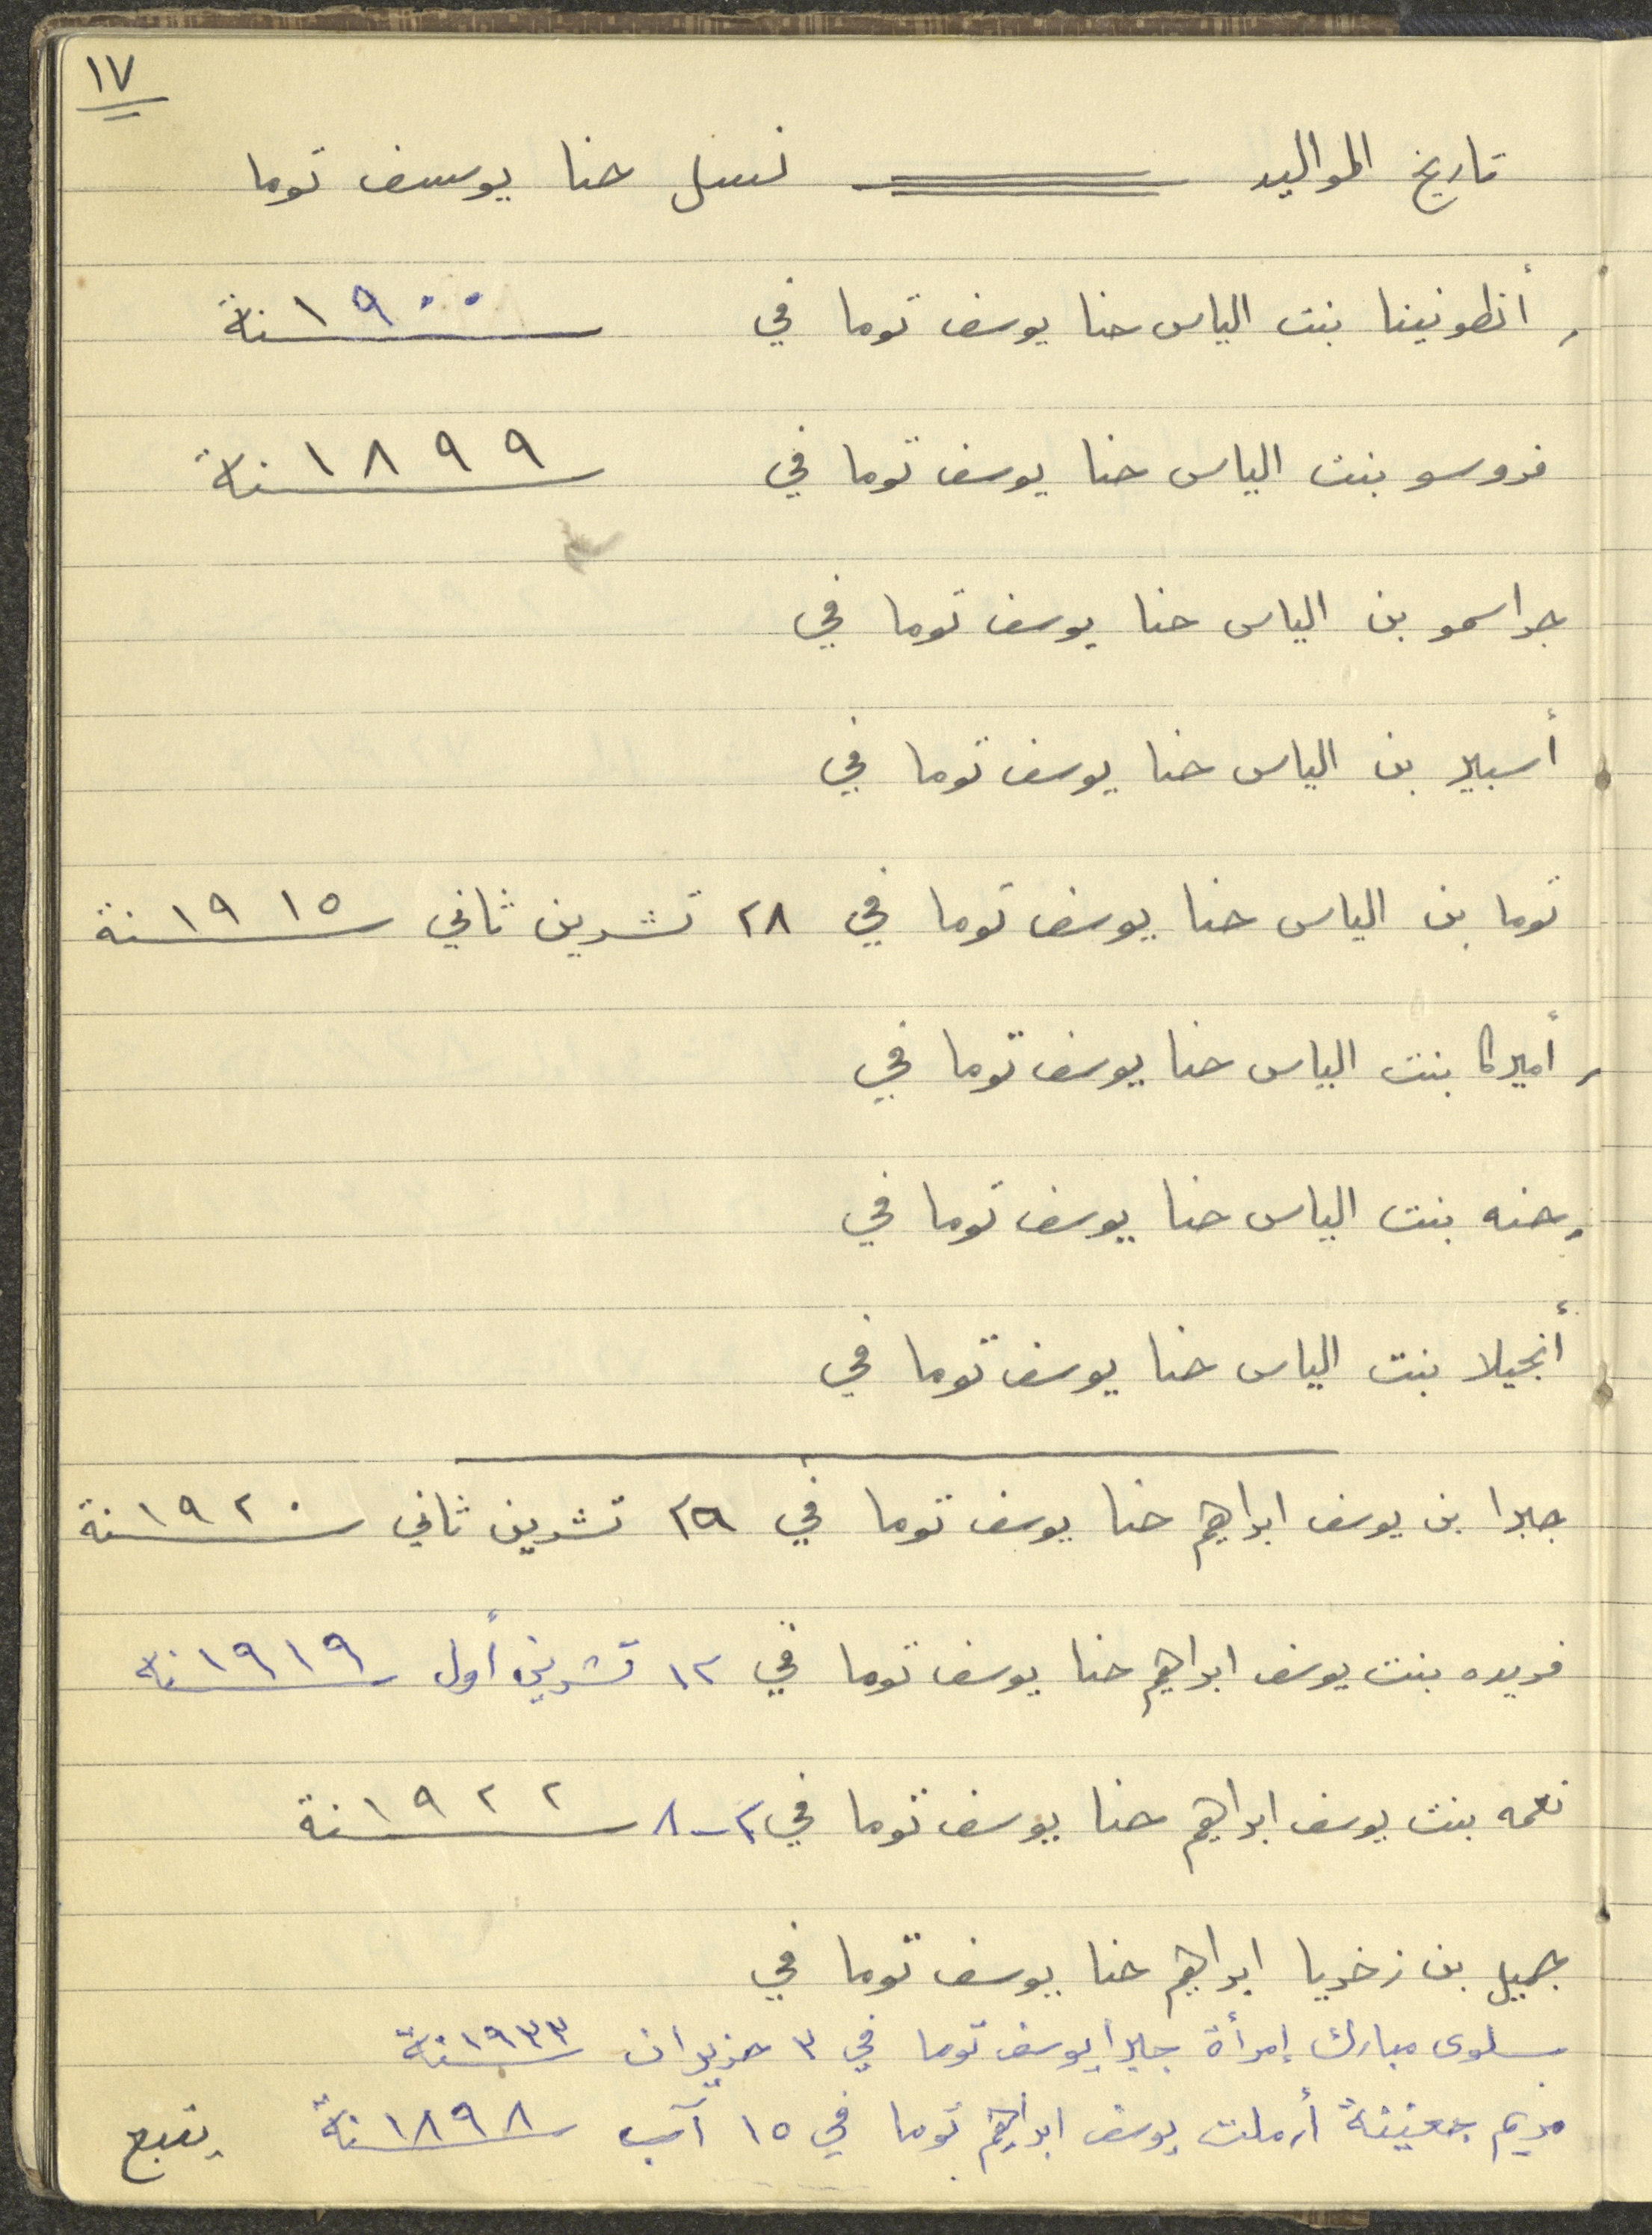 ١٧
تاريخ المواليد نسل حنا يوسف توما
أنطونينا بنت الياس حنا يوسف توما في سنة ١٩٠٠
فروسو بنت الياس حنا يوسف توما في سنة ١٨٩٩
جراسمو بن الياس حنا يوسف توما في
أسبير بن الياس حنا يوسف توما في
توما بن الياس حنا يوسف توما في ٢٨ تشرين ثاني سنة ١٩١٥
أميركا بنت الياس حنا يوسف توما في
حنه بنت الياس حنا يوسف توما في
أنجيلا بنت الياس حنا يوسف توما في
جبرا بن يوسف ابراهيم حنا يوسف توما في ٢٩ تشرين ثاني سنة ١٩٢٠
فريده بنت يوسف ابراهيم حنا يوسف توما في ١٢ تشرين أول سنة ١٩١٩
نعمه بنت يوسف ابراهيم حنا يوسف توما في ٢-٨ سنة ١٩٢٢
جميل بن زخريا ابراهيم حنا يوسف توما في
سلوى مبارك إمرأة جبرا يوسف توما في ٣ حزيران سنة ١٩٣٣
مريم جعنينة أرملت يوسف ابراهيم توما في ١٥ آب سنة ١٨٩٨ يتبع